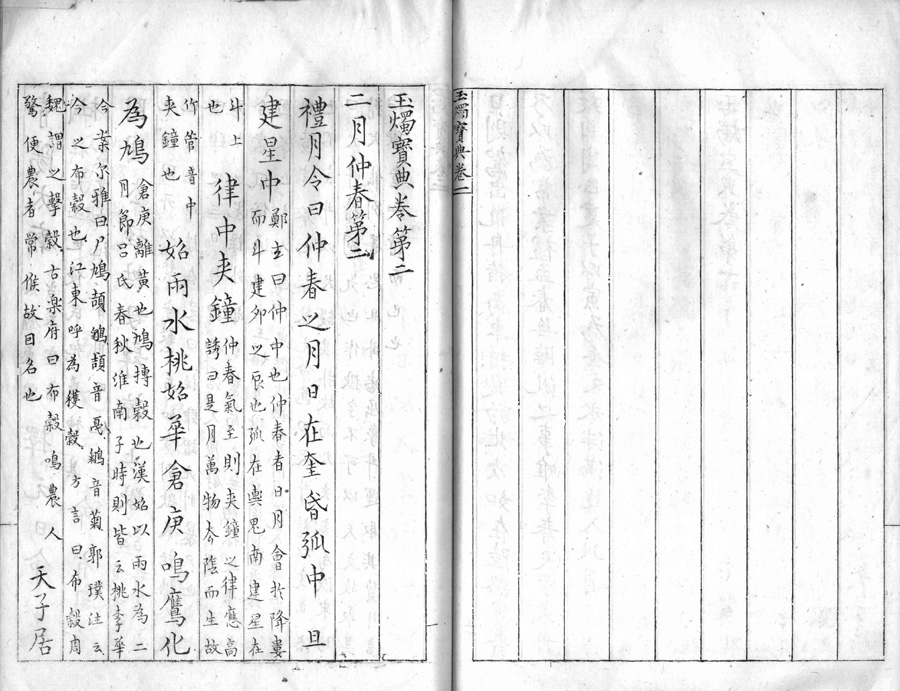 玉燭寶典卷一
玉燭寶典卷第二
二月仲春第二
禮月令曰仲春之月日在奎昏弧中 旦
建星中
鄭玄曰仲中也仲春者日月會於降婁
而斗建卯之辰也弧在輿鬼南建星在
斗上
也
律中夾鐘
仲春氣至則夾鐘之律應高
誘曰是月萬物去陰而生故
竹管音中
夾鐘也
始雨水桃始華倉庚鳴鷹化
為鳩
倉庚離黃也鳩搏穀也漢始以雨水為二
月節呂氏春秋淮南子時則皆云桃李華
今案尔雅曰尸鳩鴶鵴鴶音戛鵴音菊郭璞注云
今之布穀也江東呼為穫穀方言曰布穀周
魏謂之擊穀古樂府曰布穀鳴農人
驚便農者常候故曰名也
天子居